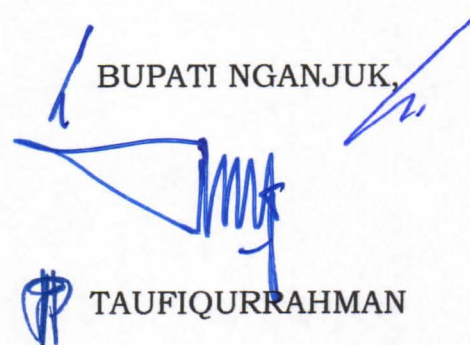 BUPATI NGANJUK,
TAUFIQURRAHMAN